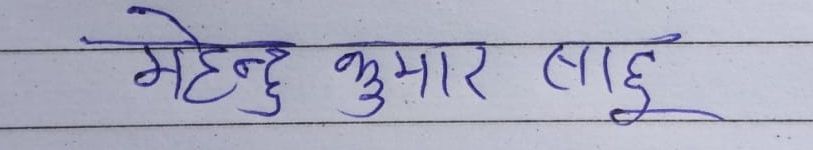 महेन्द्र कुमार साहू